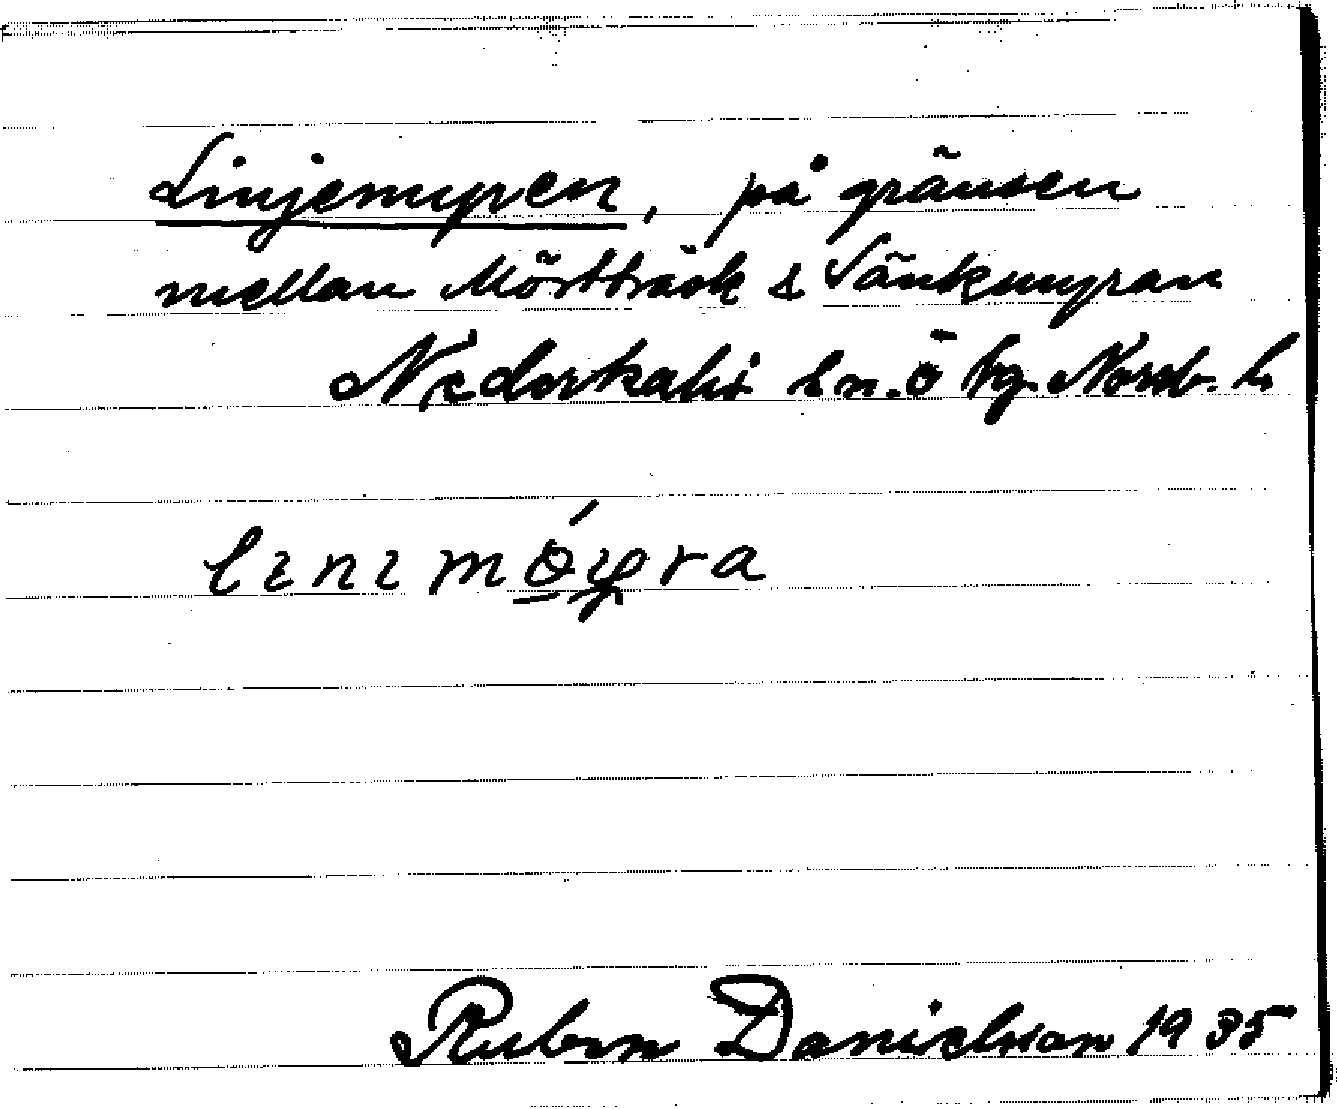 Linjemyren, på gränsen
mellan Mörtträsk & Sänkmyran
Nederkalix sn. Ö bg. Norrb. L
Ruben Danielsson 1935